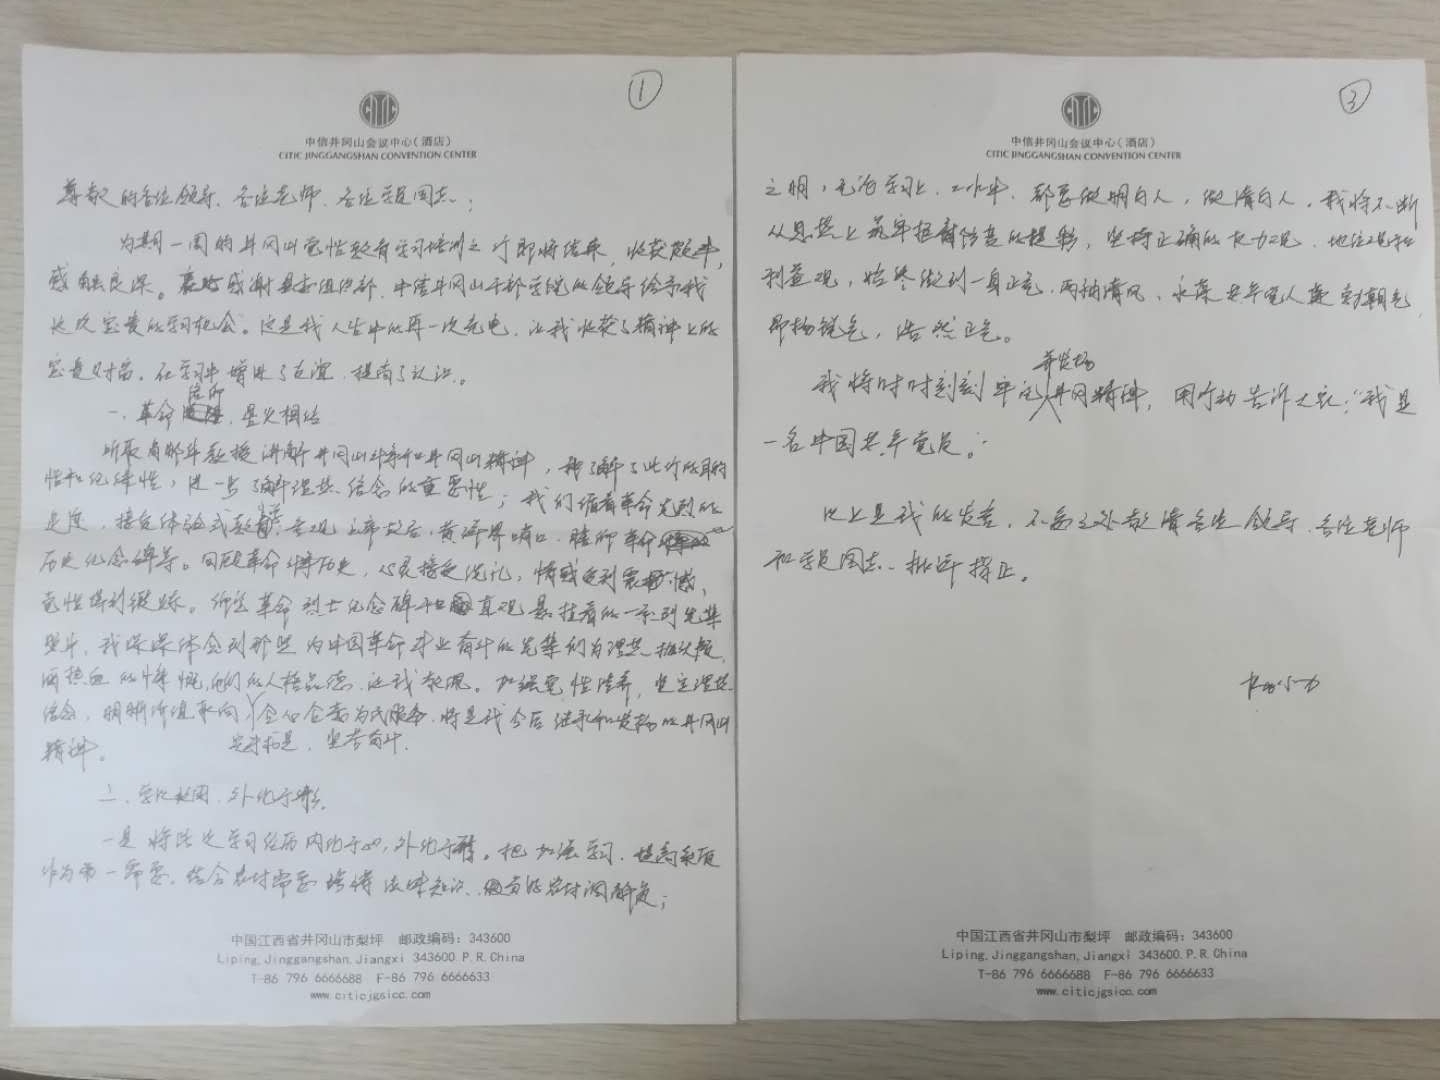 ①
CITIC
中信井冈山会议中心（酒店）
CITIC JINGGANGSHAN CONVENTION CENTER
尊敬的各位领导、各位老师、各位学员同志：
为期一周的井冈山党性教育学习培训之行即将结束，收获颇丰，
感触良深。衷心感谢县委组织部、中信井冈山干部学院的领导给予我
这次宝贵的学习机会。这是我人生中的再一次充电，让我收获了精神上的
宝贵财富，在学习中增进了友谊，提高了认识。
一、革命信仰，星火相传
听取肖邮华教授讲解井冈山斗争和井冈山精神，我了解了此行的目的
性和纪律性，进一步了解理想信念的重要性；我们循着革命先烈的
足迹，接受体验式教育，参观上帝故居，黄洋界哨口，瞻仰革命
历史纪念碑等。回顾革命历史，心灵接受洗礼，情感受到震撼，
党性得到锻炼。仰望革命烈士纪念碑和直观悬挂着的一系列先辈
照片，我深深体会到那些为中国革命事业奋斗的先辈们为理想抛头颅，
洒热血的情怀，他们的人格品德，让我敬佩。加强党性修养，坚定理想
信念，明晰价值取向，全心全意为民服务，将是我今后继承和发扬的井冈山
实事求是，坚苦奋斗，
精神。
二、学以致用，外化于形。
一是将此次学习经历内化于心，外化于形。把加强学习、提高素质
作为第一需要，结合农村需要，法律知识，当好农村调解员；
中国江西省井冈山市梨坪 邮政编码：343600
Liping, Jinggangshan, Jiangxi 343600 P.R.China
T-86 796 6666688 F-86 796 6666633
www.citicjgsicc.com
③
CITIC
中信井冈山会议中心（酒店）
CITIC JINGGANGSHAN CONVENTION CENTER
之明，无论学习上、工作中，都要做明白人，做清白人，我将不断
从思想上筑牢拒腐防变的堤坝，坚持正确的权力观、地位观和
利益观，始终做到一身正气、两袖清风，永葆共产党人蓬勃朝气，
昂扬锐气，浩然正气。
并发扬
我将时时刻刻牢记井冈精神，用行动告诉大家："我是
一名中国共产党员。"
以上是我的发言，不当之处敬请各位领导、各位老师
和学员同志、批评指正。
中国江西省井冈山市梨坪 邮政编码：343600
Liping, Jinggangshan, Jiangxi 343600 P.R.China
T-86 796 6666688 F-86 796 6666633
www.citicjgsicc.com